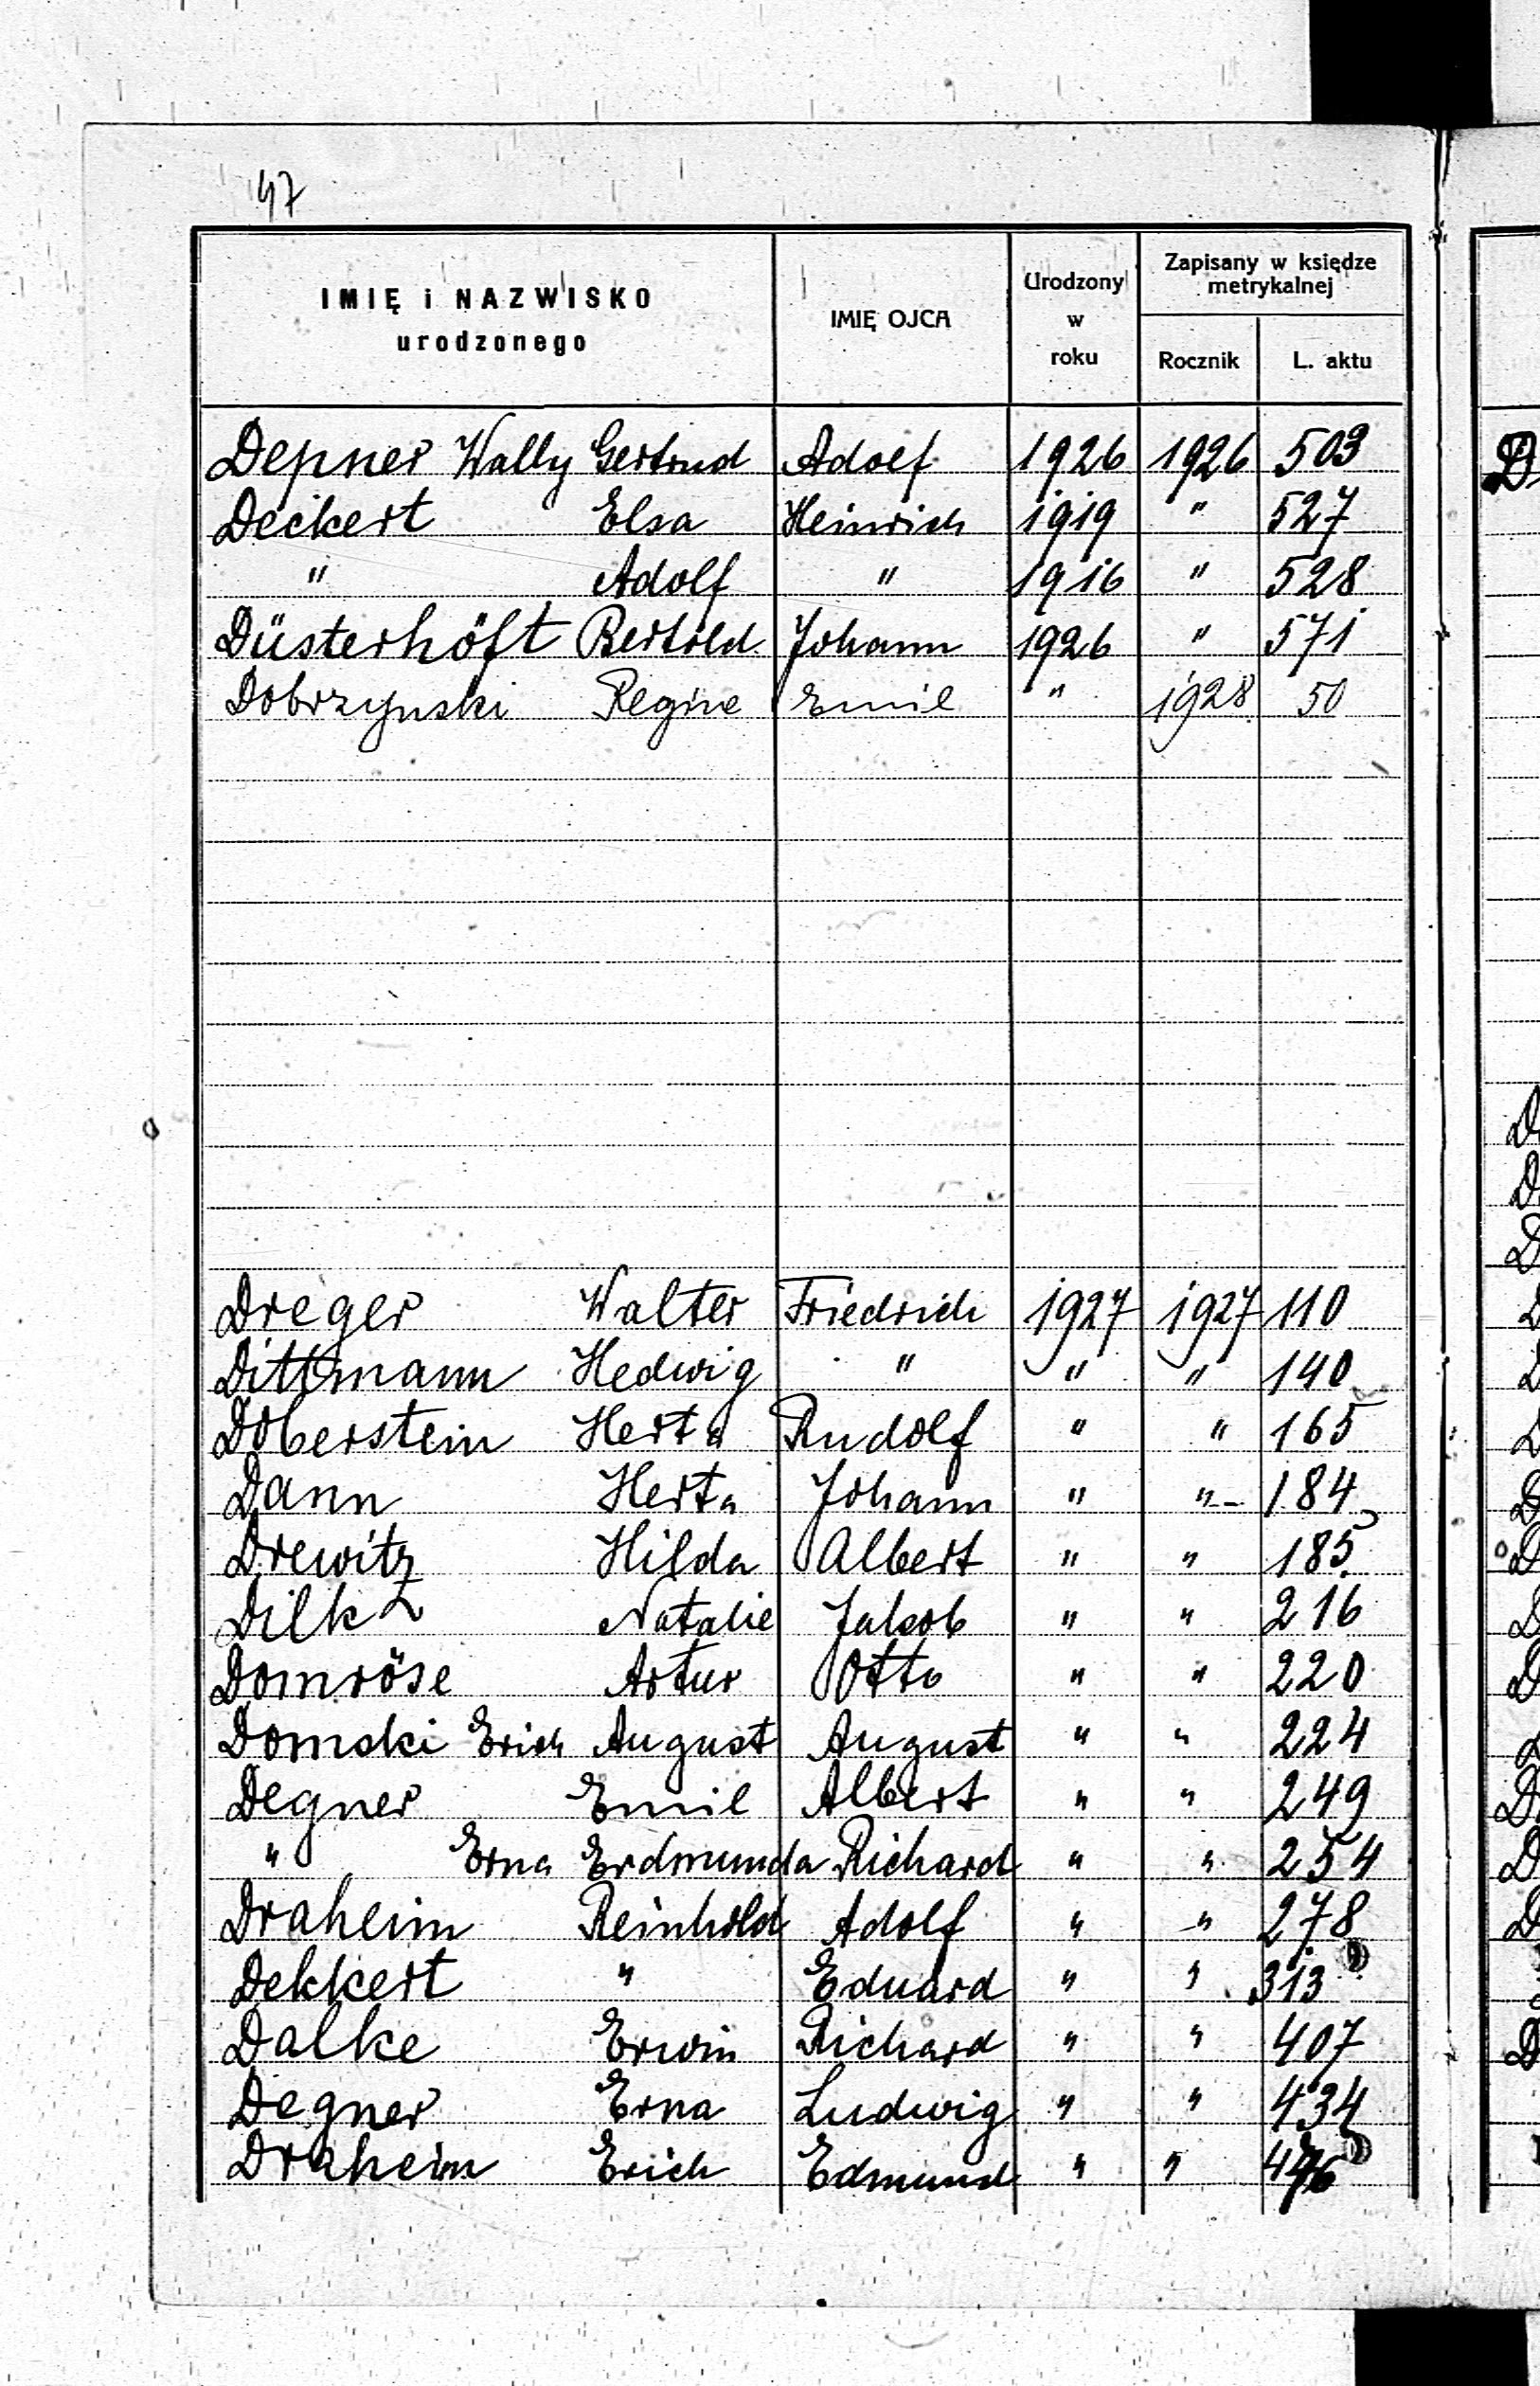 47
IMIĘ i NAZWISKO
urodzonego
IMIĘ OJCA
Urodzony
w
roku
Zapisany w księdze
metrykalnej
Rocznik
L. aktu
Depner Wally Gertrud Adolf 1926 1926 503
Deckert Elsa Heinrich 1919 " 527
" Adolf " 1916 " 528
Düsterhöft Bertold Johann 1926 " 571
Dobrzynski Regine Emil " 1928 50
Dreger Walter Friedrich 1927 1927 110
Dittmann Hedwig " " " 140
Doberstein Herta Rudolf " " 165
Dann Herta Johann " " 184
Drewitz Hilda Albert " " 185
Dilk Natalie Jakob " " 216
Domröse Artur Otto " " 220
Domski Erich August August " " 224
Degner Emil Albert " " 249
" Erna Erdmunda Richard " " 254
Draheim Reinhold Adolf " " 278
Dekkert " Eduard " " 313
Dalke Erwin Richard " " 407
Degner Erna Ludwig " " 434
Draheim Erich Edmund " "